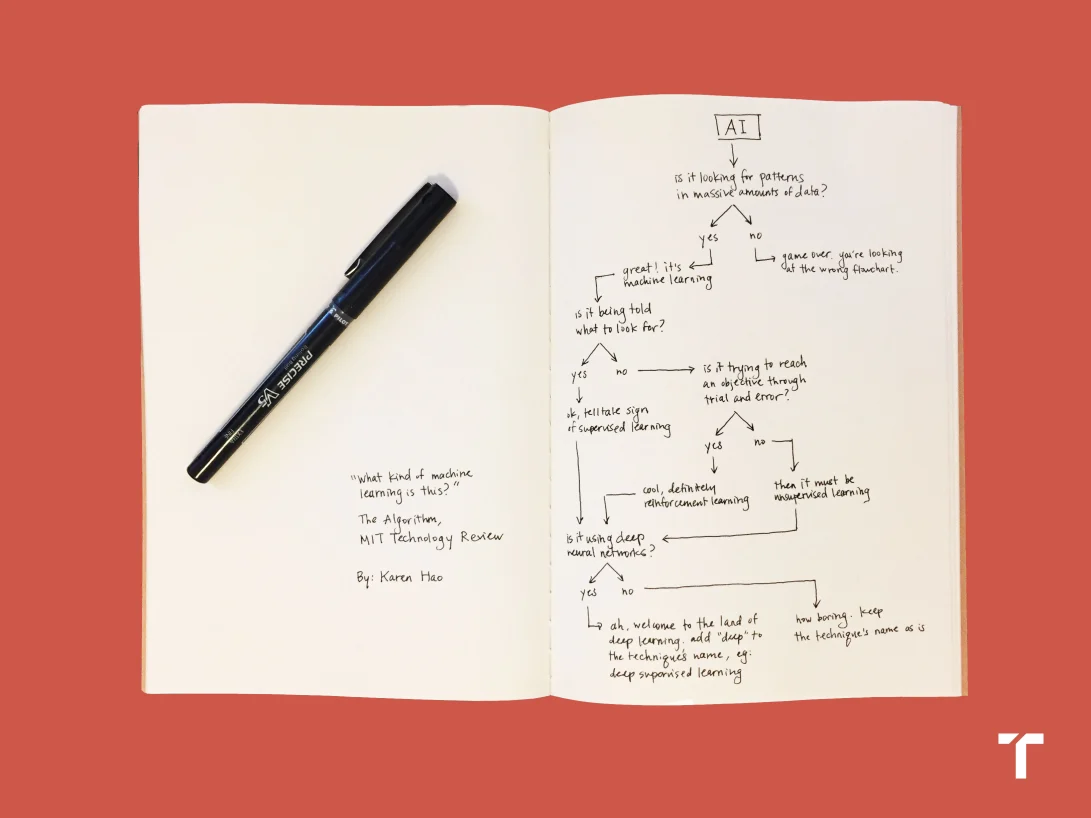 PILOT
PRECISE V5
"What kind of machine
learning is this?"
The Algorithm,
MIT Technology Review
By: Karen Hao
AI
is it looking for patterns
in massive amounts of data?
yes
no
great! it's
machine learning
game over. you're looking
at the wrong flowchart.
is it being told
what to look for?
yes
no
is it trying to reach
an objective through
trial and error?
ok, telltale sign
of supervised learning
yes
no
cool, definitely
reinforcement learning
then it must be
unsupervised learning
is it using deep
neural networks?
yes
no
ah, welcome to the land of
deep learning. add "deep" to
the technique's name, eg:
deep supervised learning
how boring. keep
the technique's name as is